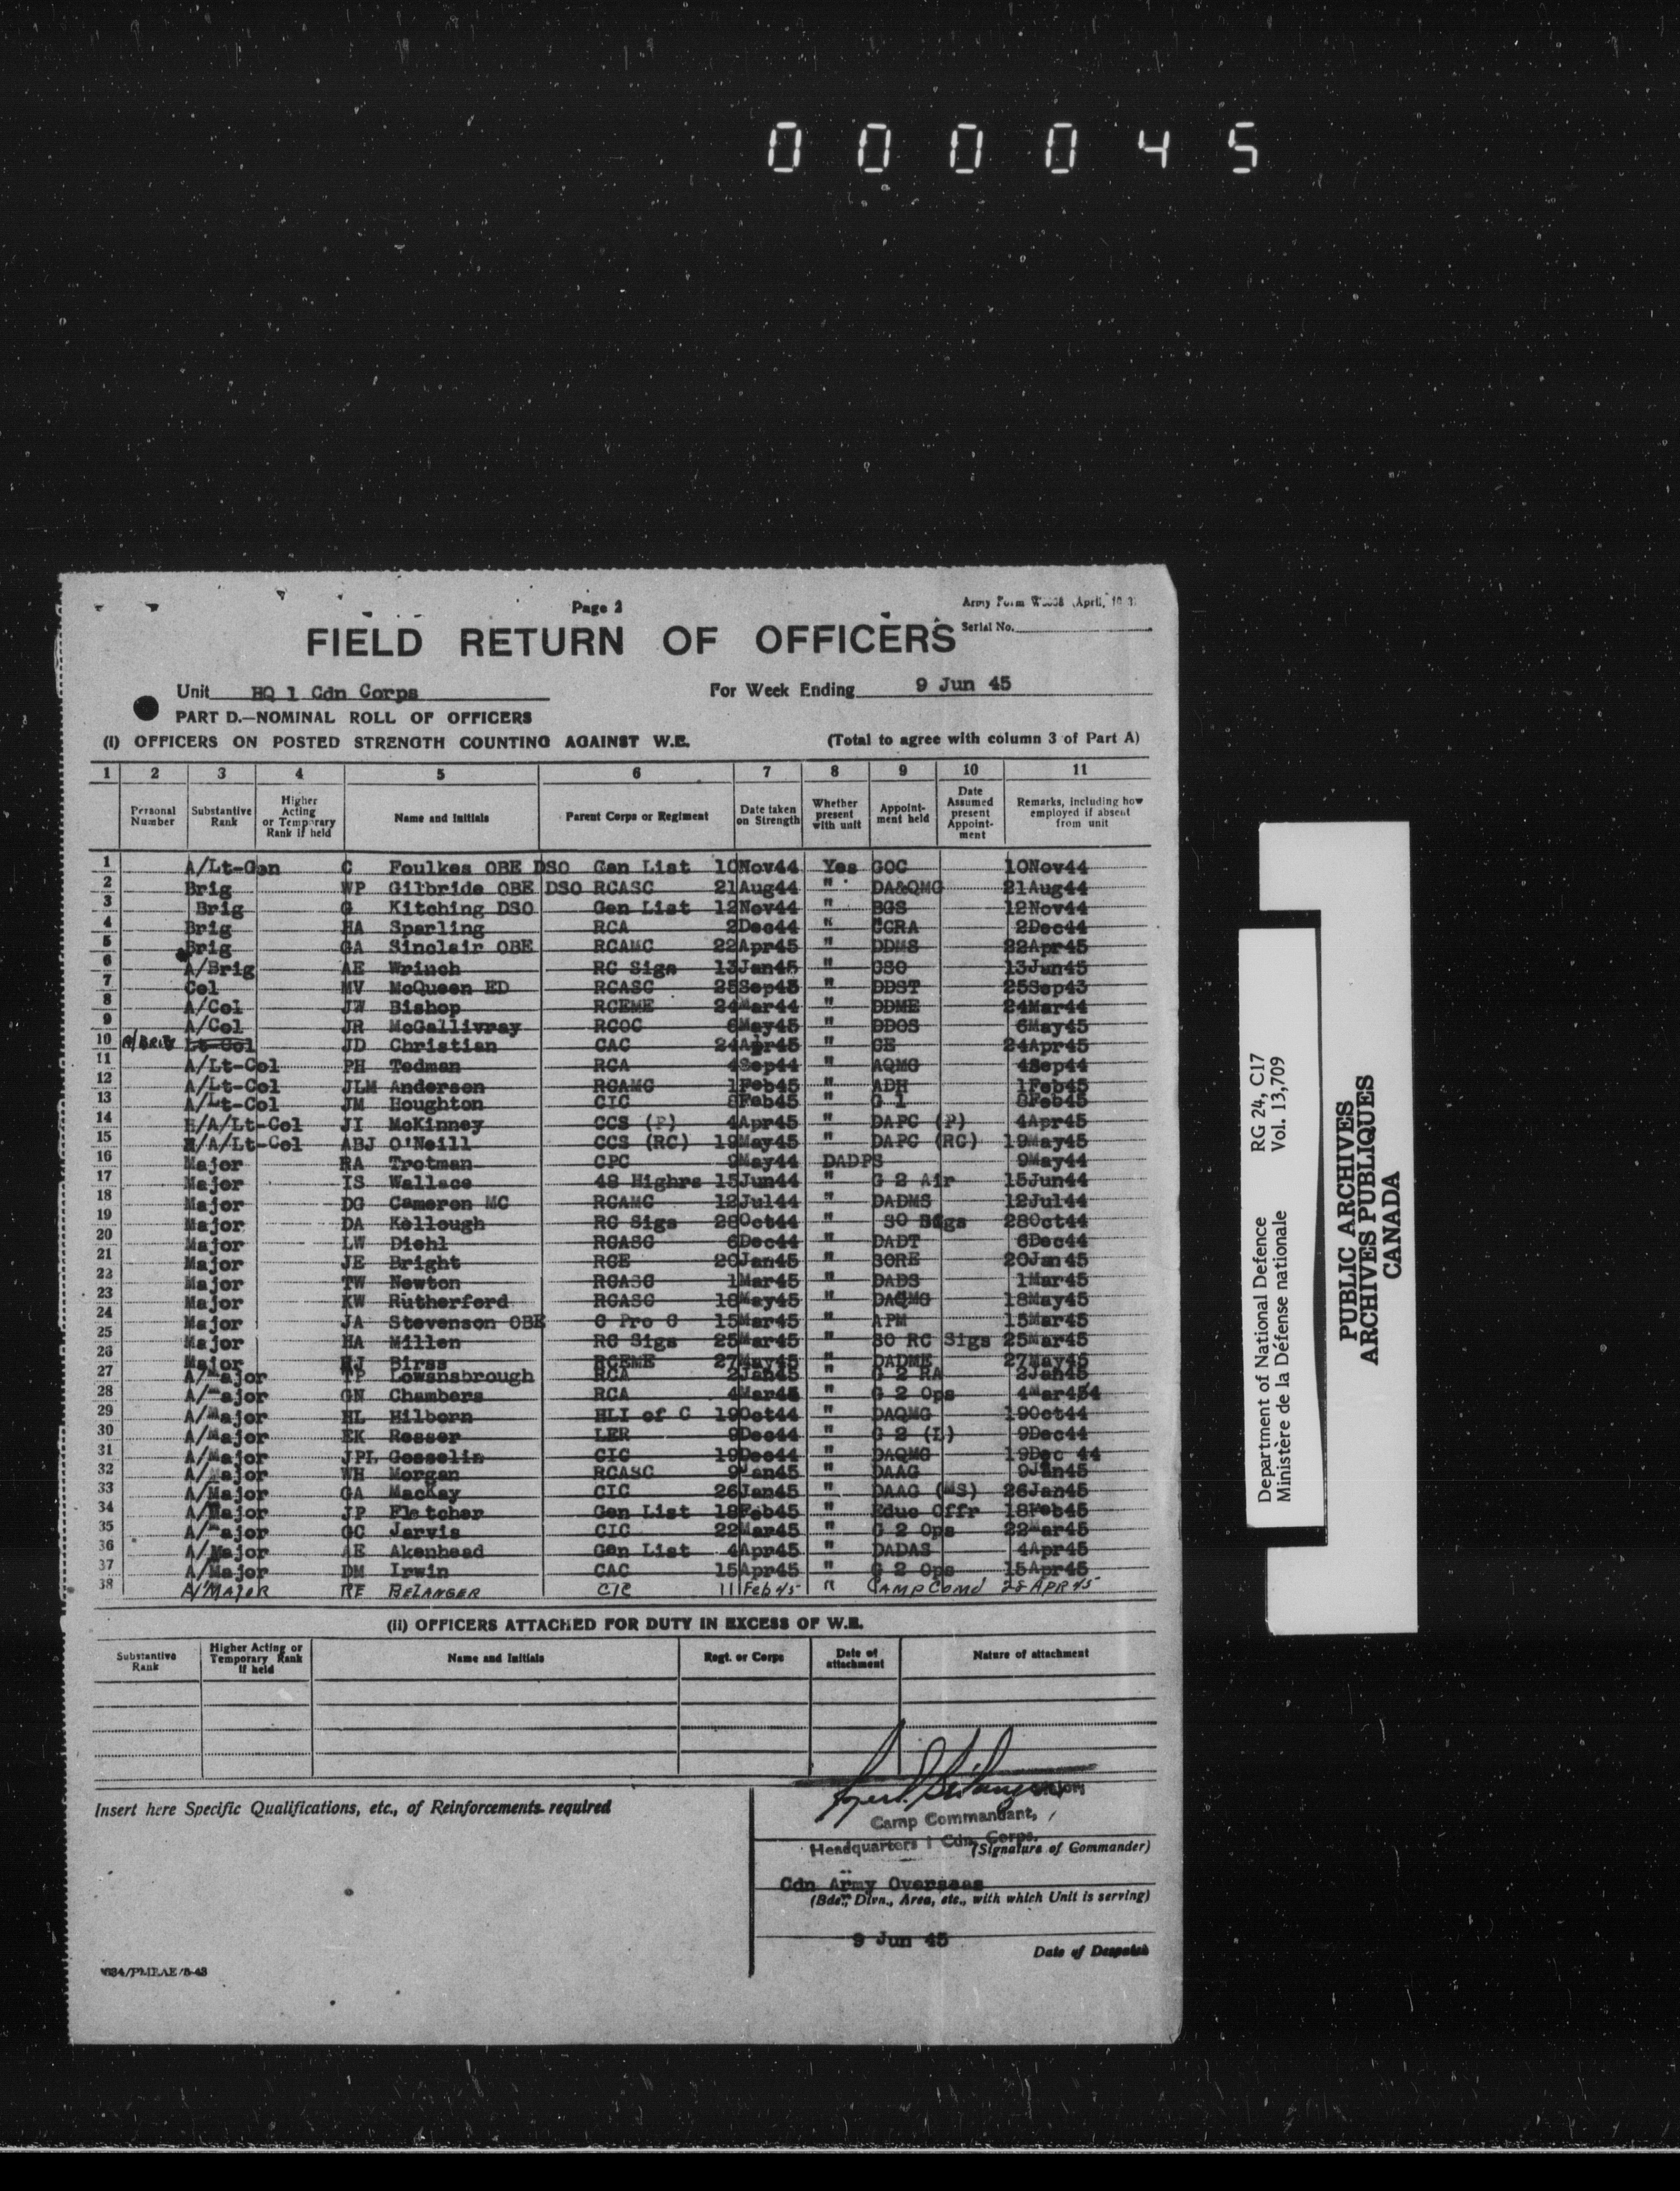 000045
Page 2
Army Form
Serial No.
FIELD RETURN OF OFFICERS
Unit HQ 1 Cdn Corps For Week Ending 9 Jun 45
PART D.—NOMINAL ROLL OF OFFICERS
(I) OFFICERS ON POSTED STRENGTH COUNTING AGAINST W.E. (Total to agree with column 3 of Part A)
1 2 3 4 5 6 7 8 9 10 11
Personal Number Substantive Rank Higher Acting or Temporary Rank if held Name and Initials Parent Corps or Regiment Date taken on Strength Whether present with unit Appoint-ment held Date Assumed present Appoint-ment Remarks, including how employed if absent from unit
1 A/Lt-Gen C Foulkes OBE DSO Gen List 10Nov44 Yes GOC 10Nov44
2 Brig WP Gilbride OBE DSO RCASC 21Aug44 " DA&QMG 21Aug44
3 Brig G Kitching DSO Gen List 12Nov44 " BGS 12Nov44
4 Brig HA Sparling RCA 2Dec44 " CCRA 2Dec44
5 Brig GA Sinclair OBE RCAMC 22Apr45 " DDMS 22Apr45
6 A/Brig AE Wrinch RC Sigs 13Jan45 " CSO 13Jan45
7 Col MV McQueen ED RCASC 25Sep43 " DDST 25Sep43
8 A/Col JW Bishop RCEME 24Mar44 " DDME 24Mar44
9 A/Col JR McGallivray RCOC 6May45 " DDOS 6May45
10 A/Brig Lt-Col JD Christian CAC 24Apr45 " CE 24Apr45
11 A/Lt-Col PH Tedman RCA 4Sep44 " AQMG 4Sep44
12 A/Lt-Col JLM Anderson RCAMC 1Feb45 " ADH 1Feb45
13 A/Lt-Col JM Houghton CIC 8Feb45 " G 1 8Feb45
14 H/A/Lt-Col JI McKinney CCS (P) 4Apr45 " DAPC (P) 4Apr45
15 H/A/Lt-Col ABJ O'Neill CCS (RC) 19May45 " DAPC (RC) 19May45
16 Major RA Trotman CPC 9May44 DADPS 9May44
17 Major IS Wallace 48 Highrs 15Jun44 " G 2 Air 15Jun44
18 Major DG Cameron MC RCAMC 12Jul44 " DADMS 12Jul44
19 Major DA Kellough RC Sigs 28Oct44 " SO Sigs 28Oct44
20 Major LW Diehl RCASC 6Dec44 " DADT 6Dec44
21 Major JE Bright RCE 20Jan45 " SORE 20Jan45
22 Major TW Newton RCASC 1Mar45 " DADS 1Mar45
23 Major KW Rutherford RCASC 18May45 " DAQMG 18May45
24 Major JA Stevenson OBE C Pro C 15Mar45 " APM 15Mar45
25 Major HA Millen RC Sigs 25Mar45 " SO RC Sigs 25Mar45
26 Major Birss RCEME 27May45 " DADME 27May45
27 A/Major TP Lowsnsbrough RCA 2Jan45 " G 2 RA 2Jan45
28 A/Major GN Chambers RCA 4Mar45 " G 2 Ops 4Mar454
29 A/Major HL Hilborn HLI of C 19Oct44 " DAQMG 19Oct44
30 A/Major EK Resser LER 9Dec44 " G 2 (L) 9Dec44
31 A/Major JPL Gosselin CIC 19Dec44 " DAQMG 19Dec 44
32 A/Major WH Morgan RCASC 9Jan45 " DAAG 9Jan45
33 A/Major GA MacKay CIC 26Jan45 " DAAG (MS) 26Jan45
34 A/Major JP Fletcher Gen List 18Feb45 " Educ Offr 18Feb45
35 A/Major GC Jarvis CIC 22Mar45 " G 2 Ops 22Mar45
36 A/Major AE Akenhead Gen List 4Apr45 " DADAS 4Apr45
37 A/Major DM Irwin CAC 15Apr45 " G 2 Ops 15Apr45
38 A/MAJOR RE BELANGER CIC 11Feb45 " CAMP COMD 28 APR 45
(II) OFFICERS ATTACHED FOR DUTY IN EXCESS OF W.E.
Substantive Rank Higher Acting or Temporary Rank if held Name and Initials Regt. or Corps Date of attachment Nature of attachment
Insert here Specific Qualifications, etc., of Reinforcements required
Major,
Camp Commandant,
Headquarters 1 Cdn. Corps.
(Signature of Commander)
Cdn Army Overseas
(Bde., Divn., Area, etc., with which Unit is serving)
9 Jun 45
Date of Despatch
Department of National Defence RG 24, C17
Ministère de la Défense nationale Vol. 13,709
PUBLIC ARCHIVES
ARCHIVES PUBLIQUES
CANADA